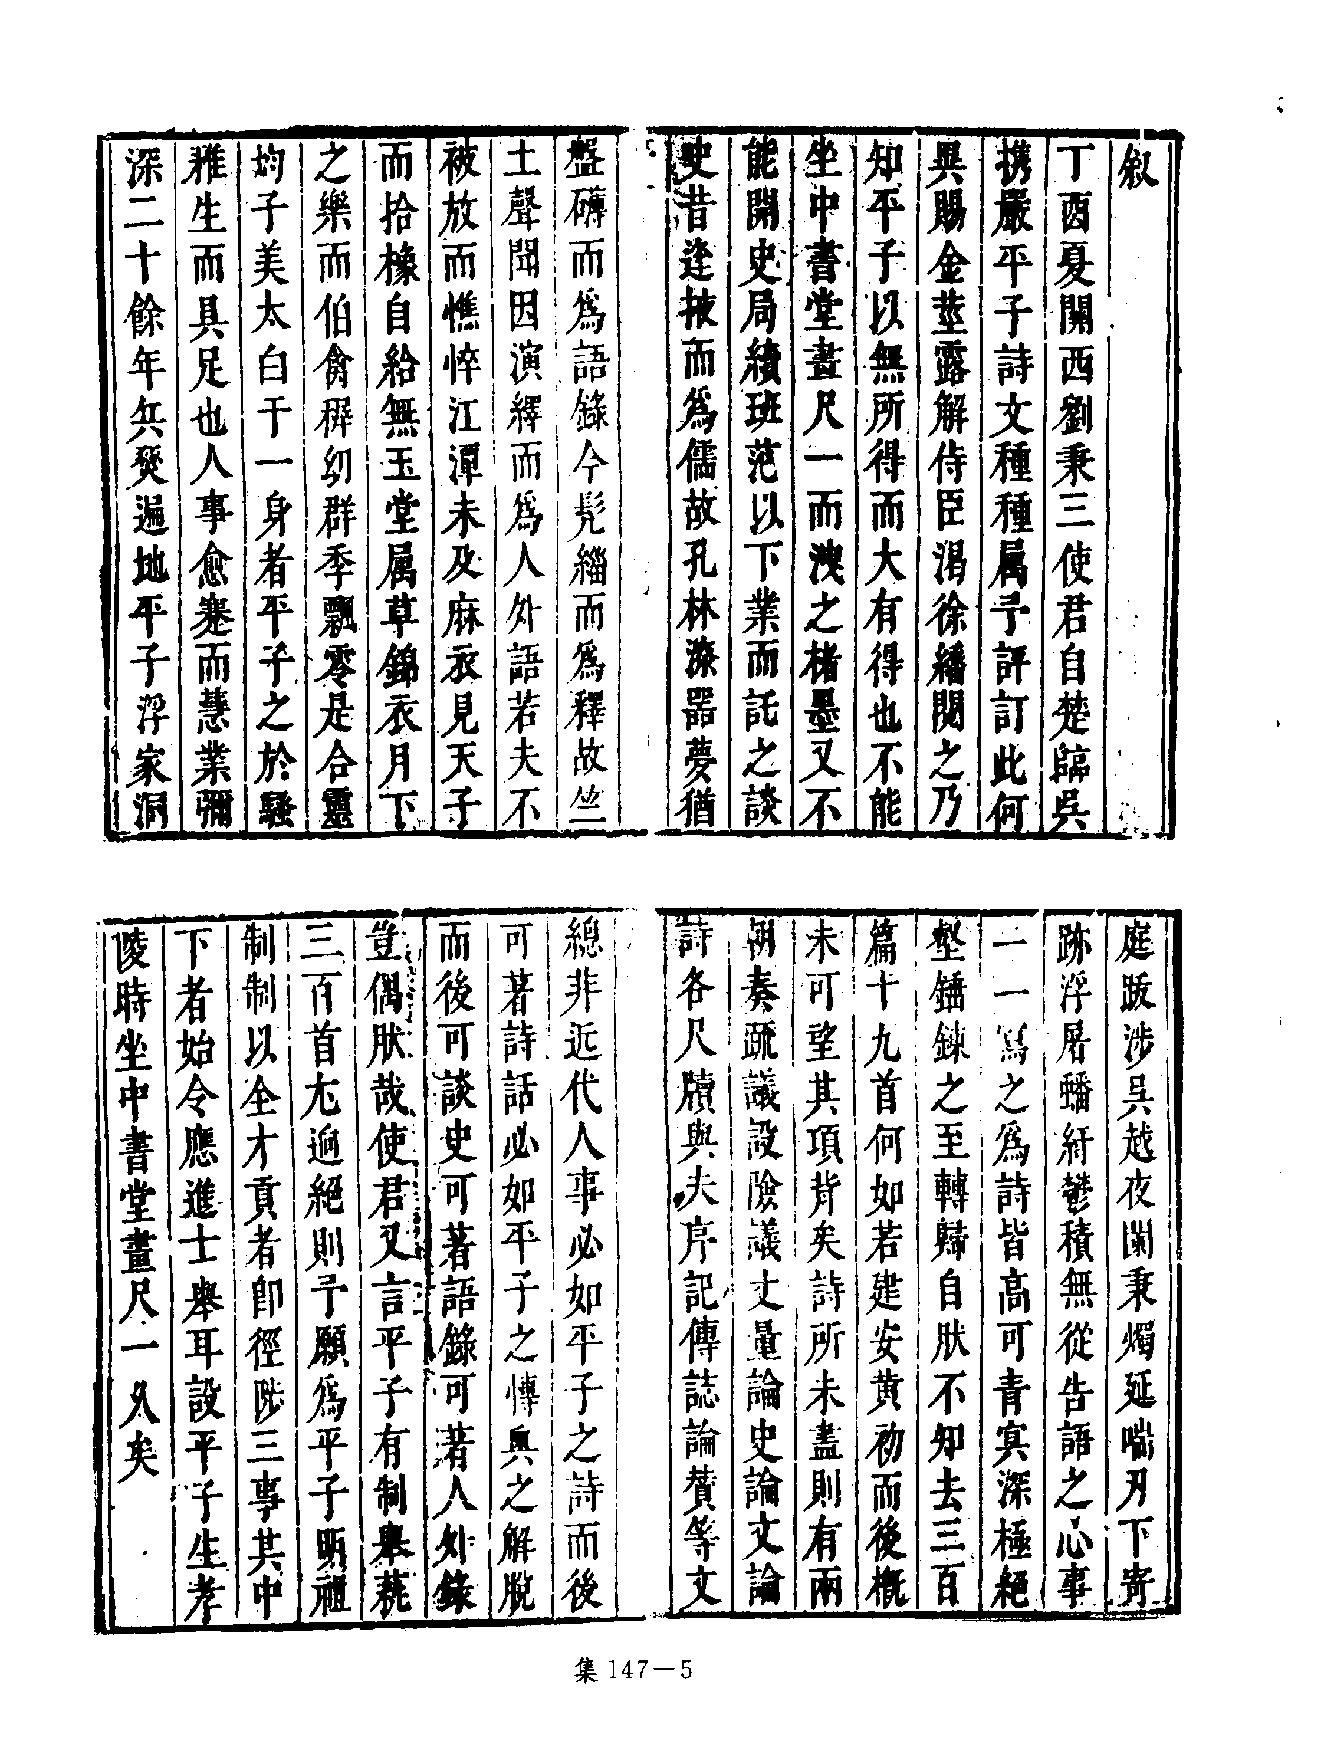 叙
丁酉夏關西劉秉三使君自楚臨吳
携嚴平子詩文種種属予評訂此何
異賜金莖露解侍臣渴徐繙閱之乃
知平子以無所得而大有得也不能
坐中書堂畫尺一而洩之楮墨又不
能開史局續班范以下業而託之談
史昔逢掖而為儒故孔林漆器夢猶
盤礴而為語錄今髠緇而為釋故竺
土聲聞因演繹而為人外語若夫不
被放而憔悴江潭未及麻衣見天子
而拾橡自給無玉堂属草錦衣月下
之樂而伯禽穉幼群季飄零是合靈
均子美太白于一身者平子之於騷
雅生而具足也人事愈蹇而慧業彌
深二十餘年兵燹遍地平子浮家洞
庭跋涉吳越夜闌秉燭延喘刃下寄
跡浮屠蟠紆鬱積無從告語之心事
一一寫之為詩皆高可青冥深極絕
壑鐇鍊之至轉歸自肰不知去三百
篇十九首何如若建安黄初而後概
未可望其項背矣詩所未盡則有兩
朝奏疏議設險議丈量論史論文論
詩各尺牘與夫序記傳誌論贊等文
總非近代人事必如平子之詩而後
可著詩話必如平子之慱與之解脫
而後可談史可著語錄可著人外錄
豈偶肰哉使君又言平子有制舉蓺
三百首尤逈絕則予願為平子明禋
制制以全才貢者卽徑陟三事其中
下者始令應進士舉耳設平子生孝
陵時坐中書堂畫尺一久矣
集147－5